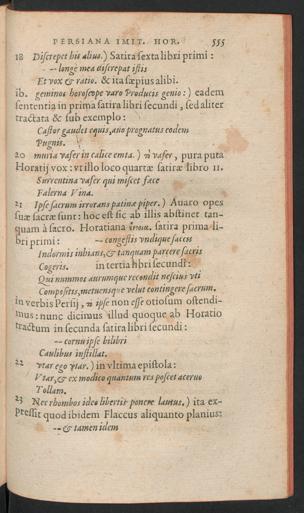 PERSIANA IMIT. HOR. 555
18 Discrepet his alius.) Satira sexta libri primi :
-- longe mea discrepat istis
Et vox & ratio. & ita sæpius alibi.
ib. geminos horoscope varo Producis genio :) eadem
sententia in prima satira libri secundi , sed aliter
tractata & sub exemplo :
Castor gaudet equis, ouo prognatus eodem
Pugnis.
20 muria vafer in calice emta.) vafer , pura puta
Horatij vox : vt illo loco quartæ satiræ libro 11.
Surrentina vafer qui miscet fæce
Falerna Vina.
21 Ipse sacrum irrorans patinæ piper.) Auaro opes
suæ sacræ sunt : hoc est sic ab illis abstinet tan-
quam à sacro. Horatiana satira prima li-
bri primi : -- congestis vndique saccis
Indormis inhians, & tanquam parcere sacris
Cogeris. in tertia libri secundi :
Qui nummos aurumque recondit nescius vti
Compositis, metuensque velut contingere sacrum.
in verbis Persij , ipse non esse otiosum ostendi-
mus : nunc dicimus illud quoque ab Horatio
tractum in secunda satira libri secundi :
-- cornu ipse bilibri
Caulibus instillat.
22 vtar ego vtar.) in vltima epistola :
Vtar, & ex modico quantum res poscet aceruo
Tollam.
23 Nec rhombos ideo libertis ponere lautus.) ita ex-
pressit quod ibidem Flaccus aliquanto planius:
-- & tamen idem